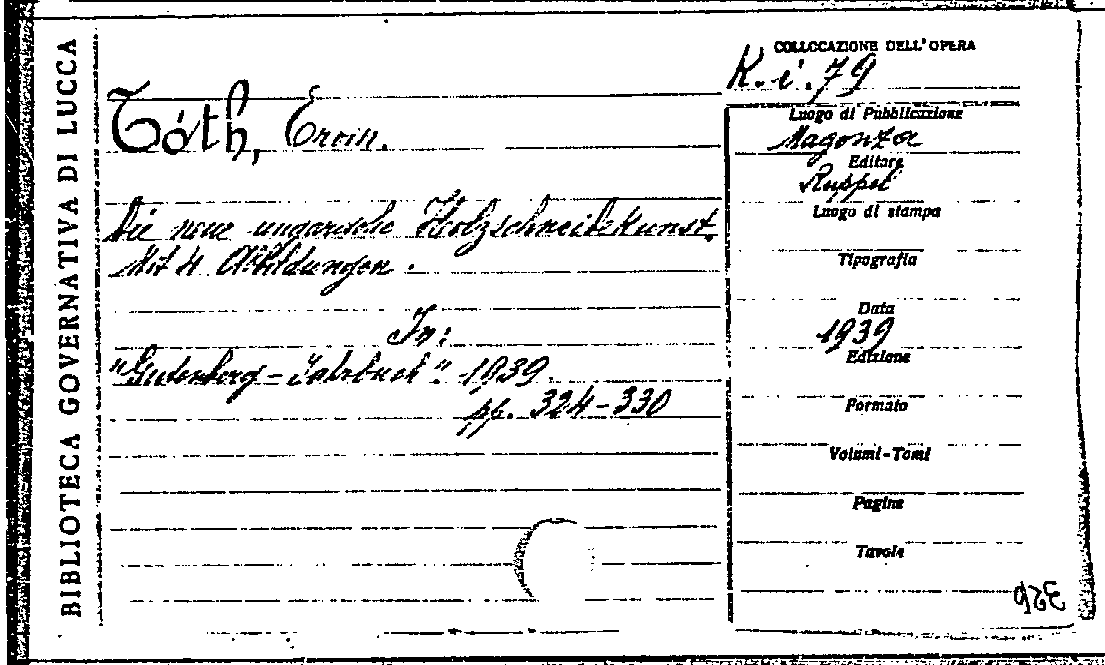 BIBLIOTECA GOVERNATIVA DI LUCCA
Tóth, Ervin.
Die neue ungarische Holzschneidekunst.
Mit 4 Abbildungen.
In:
"Gutenberg-Jahrbuch". 1939.
pp. 324-330
COLLOCAZIONE DELL'OPERA
K. i. 79
Luogo di Pubblicazione
Magonza
Editore
Ruppel
Luogo di stampa
Tipografia
Data
1939
Edizione
Formato
Volumi-Tomi
Pagine
Tavole